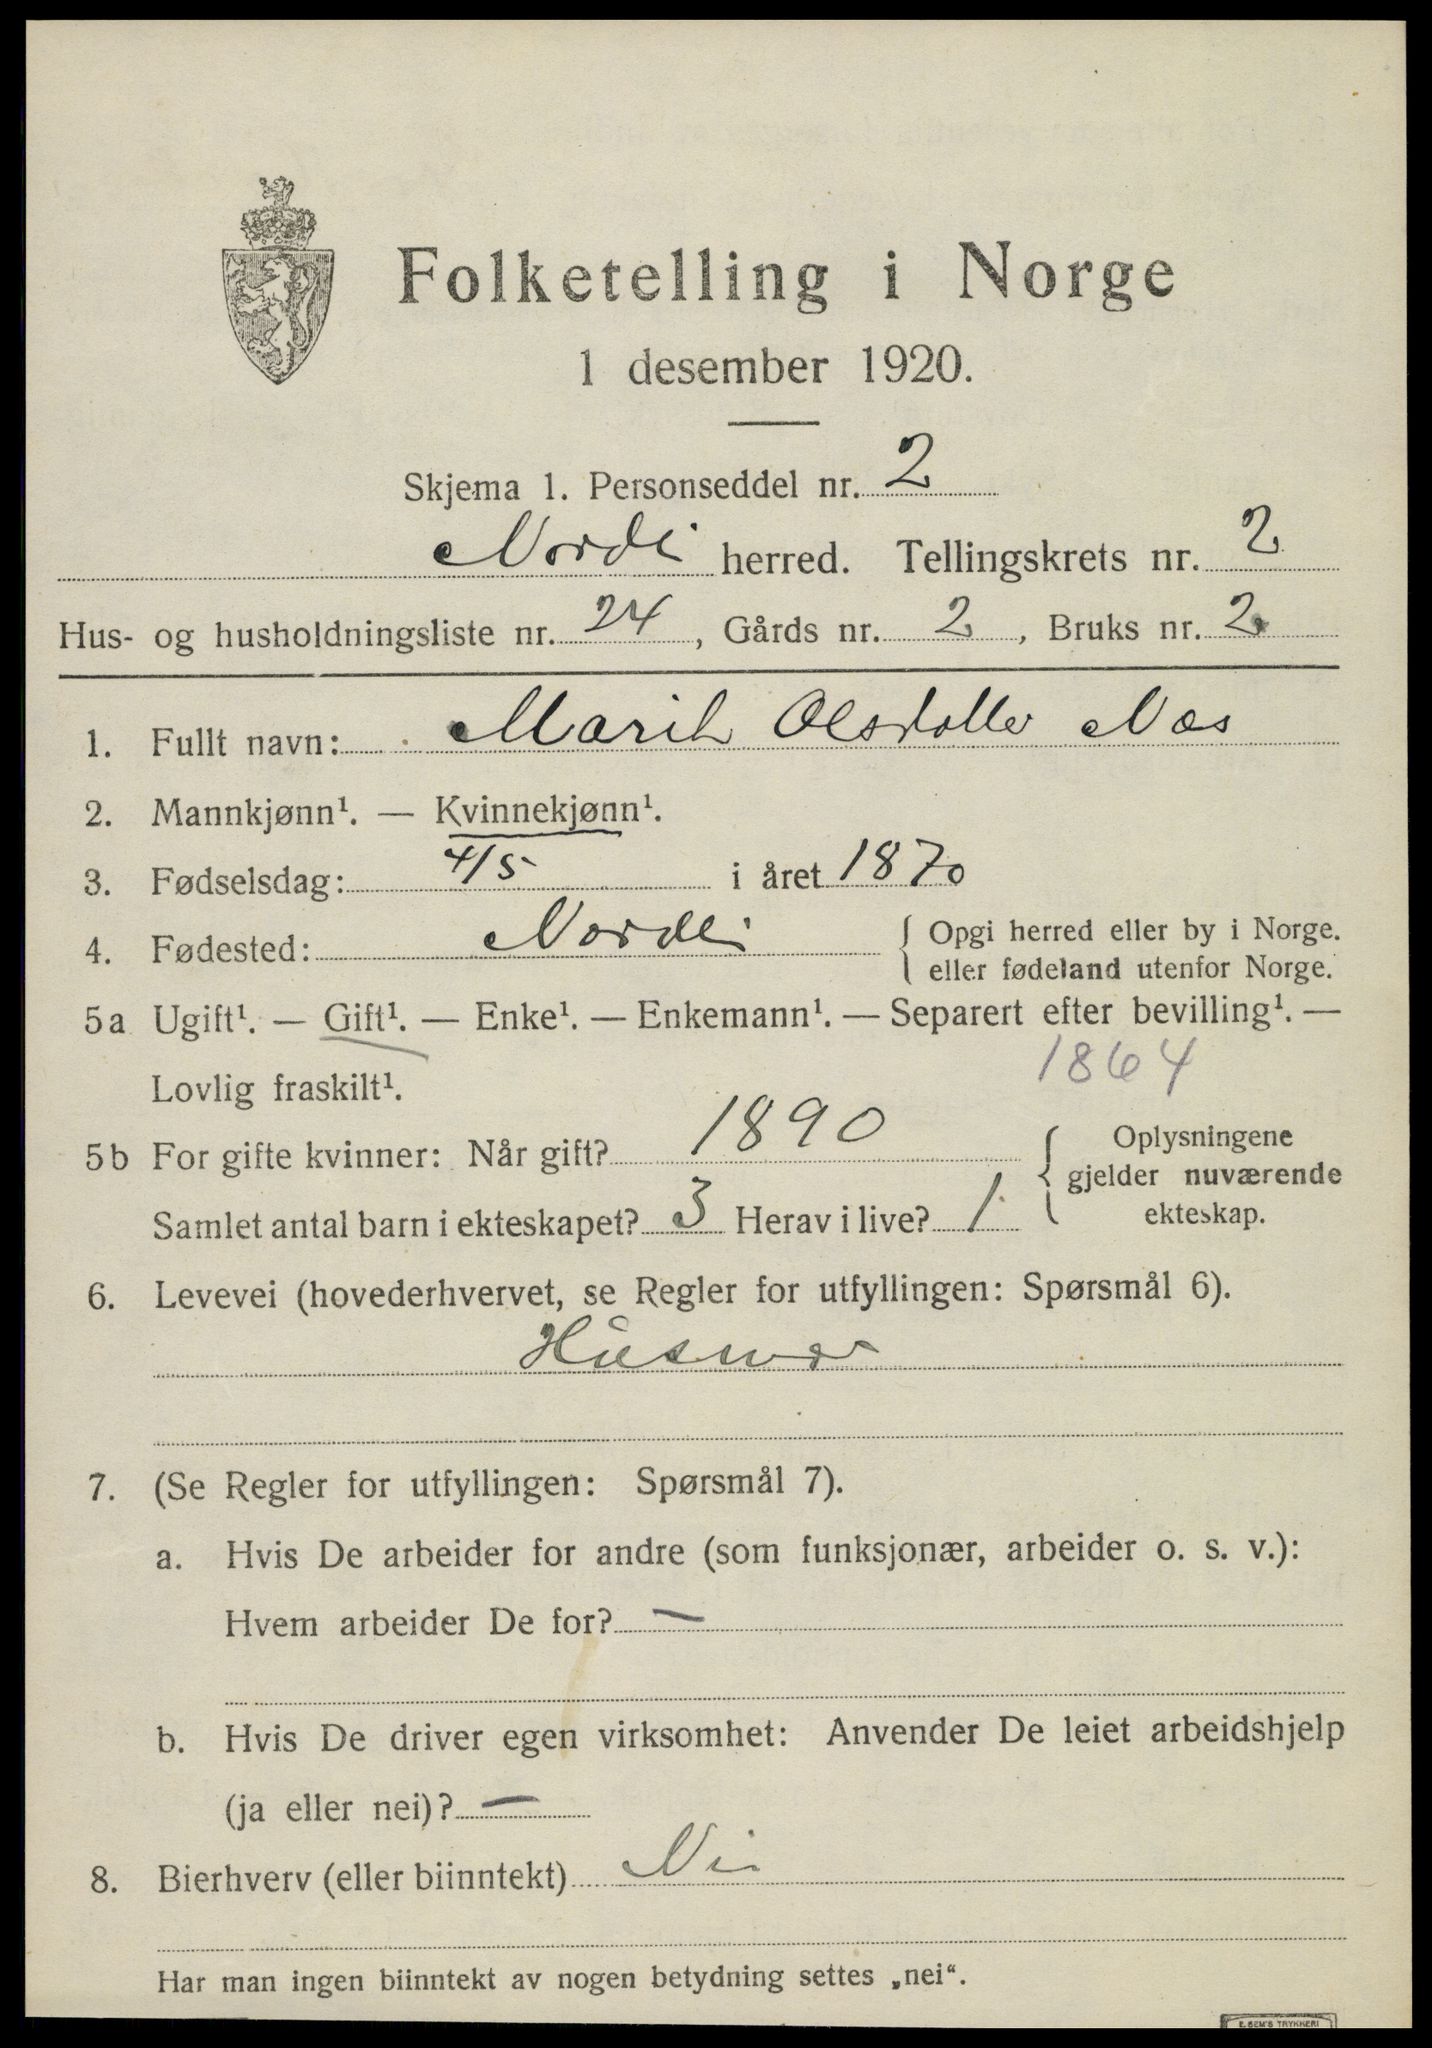 Folketelling i Norge
1 desember 1920.
Skjema 1. Personseddel nr. 2
Norddi herred. Tellingskrets nr. 2
Hus- og husholdningsliste nr. 24, Gårds nr. 2, Bruks nr. 2
1. Fullt navn: Marit Olsdatter Næs
2. Mannkjønn¹. — Kvinnekjønn¹.
3. Fødselsdag: 4/5 i året 1870
4. Fødested: Nordli { Opgi herred eller by i Norge.
eller fødeland utenfor Norge.
5a Ugift¹. — Gift¹. — Enke¹. — Enkemann¹. — Separert efter bevilling¹. —
1864
Lovlig fraskilt¹.
5b For gifte kvinner: Når gift? 1890
Samlet antal barn i ekteskapet? 3 Herav i live? 1
{ Oplysningene
gjelder nuværende
ekteskap.
6. Levevei (hovederhvervet, se Regler for utfyllingen: Spørsmål 6).
Husmor
7. (Se Regler for utfyllingen: Spørsmål 7).
a. Hvis De arbeider for andre (som funksjonær, arbeider o. s. v.):
Hvem arbeider De for? —
b. Hvis De driver egen virksomhet: Anvender De leiet arbeidshjelp
(ja eller nei)? —
8. Bierhverv (eller biinntekt) Nei
Har man ingen biinntekt av nogen betydning settes „nei“.
E. SEM'S TRYKKERI